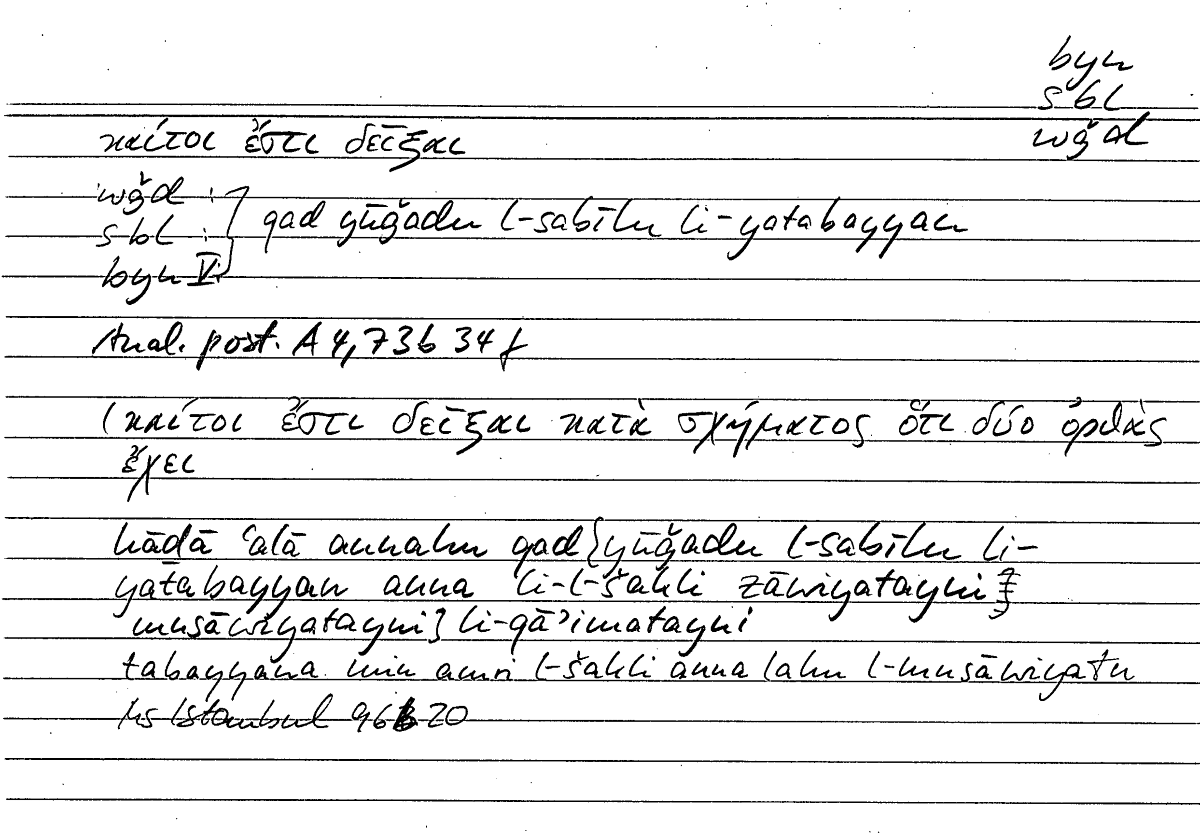 byn
sbl
wǧd
καίτοι ἔστι δεῖξαι
wǧd :
sbl : } qad yūǧadu l-sabīlu li-yatabayyan
byn V:
Anal. post. A 4, 73b 34 f
(καίτοι ἔστι δεῖξαι κατὰ σχήματος ὅτι δύο ὀρθὰς
ἔχει
hāḏā ʿalā annahu qad {yūǧadu l-sabīlu li-
yatabayyan anna li-l-šakli zāwiyatayni}
musāwiyatayni} li-qāʾimatayni
tabayyana min amri l-šakli anna lahu l-musāwiyatu
Ms Istanbul 96b 20